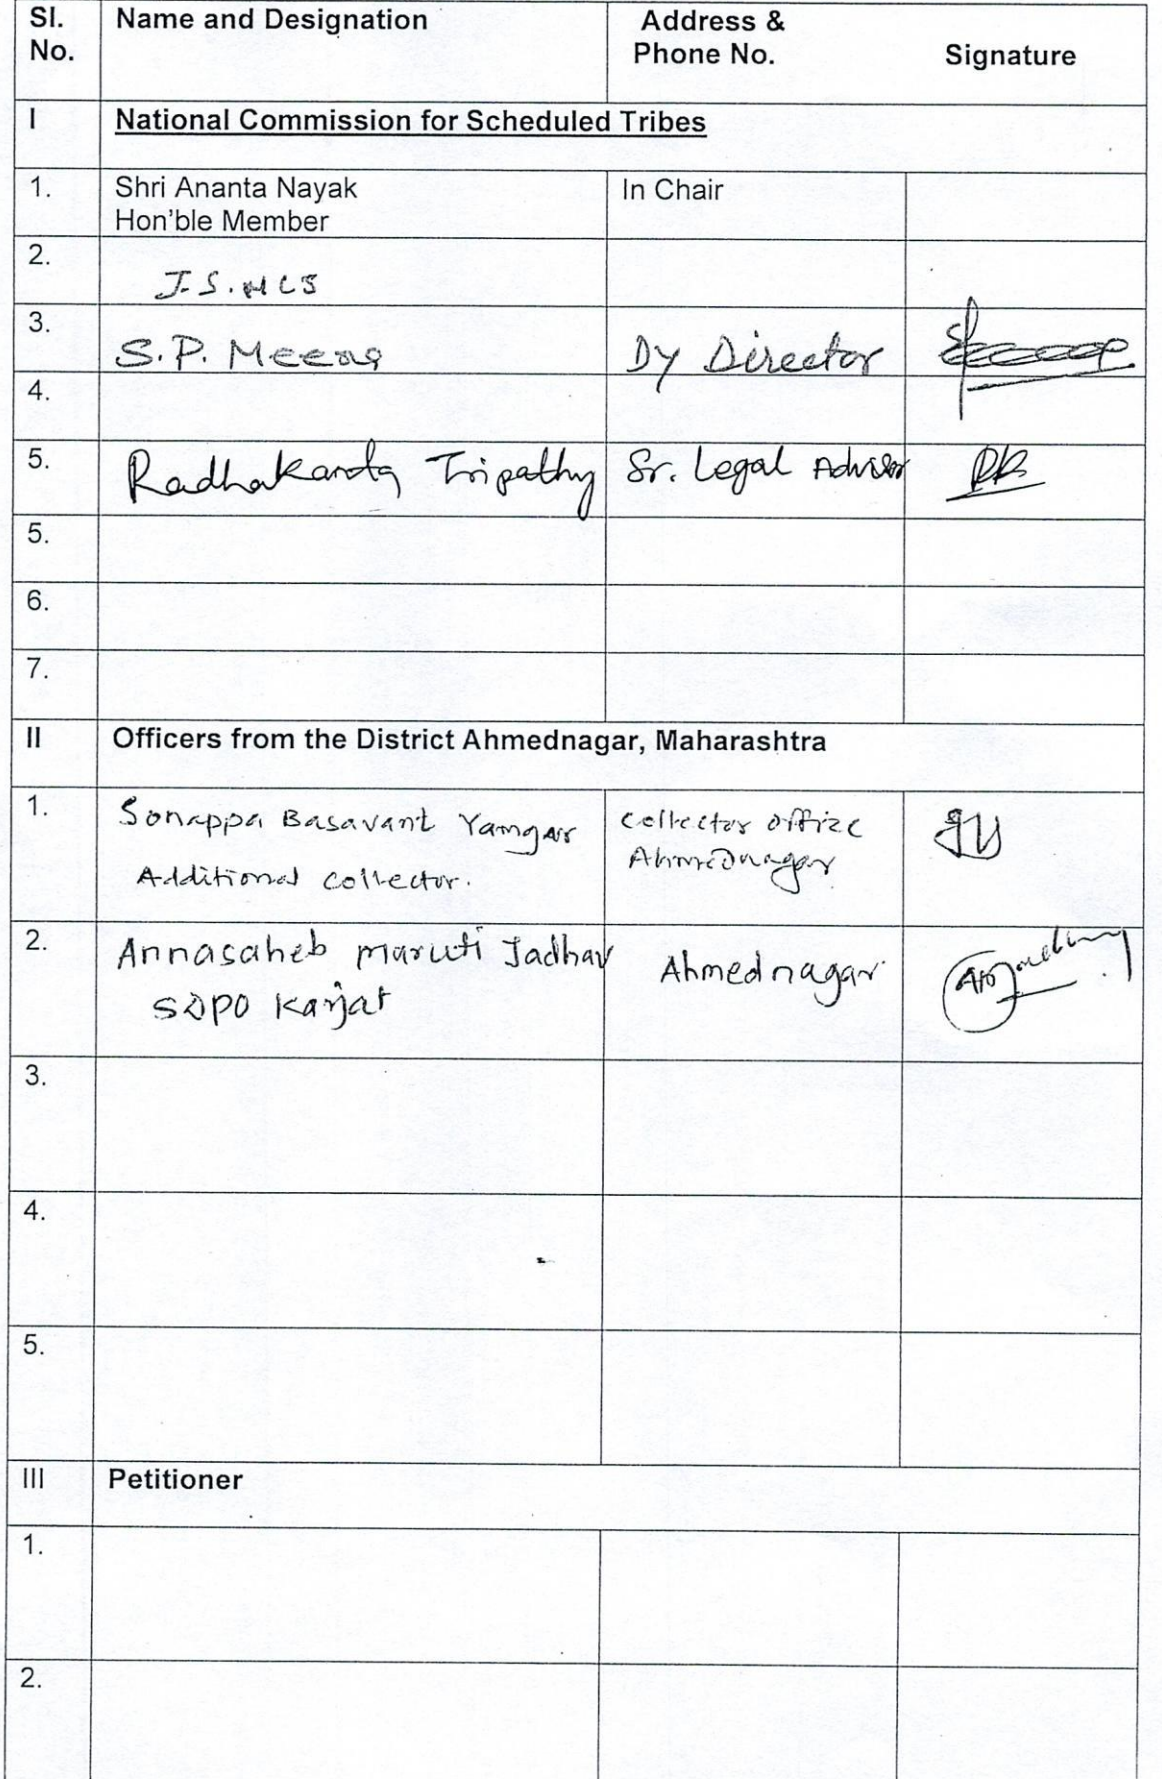 Sl. No. Name and Designation Address & Phone No. Signature
I National Commission for Scheduled Tribes
1. Shri Ananta Nayak In Chair
Hon'ble Member
2.
3. S.P. Meena Dy Director
4.
5. Radhakanta Tripathy Sr. Legal Advisor
5.
6.
7.
II Officers from the District Ahmednagar, Maharashtra
1. Sonappa Basavant Yamgar collector office
Additional collector. Ahmednagar
2. Annasaheb maruti Jadhav Ahmednagar
SDPO Karjat
3.
4.
5.
III Petitioner
1.
2.